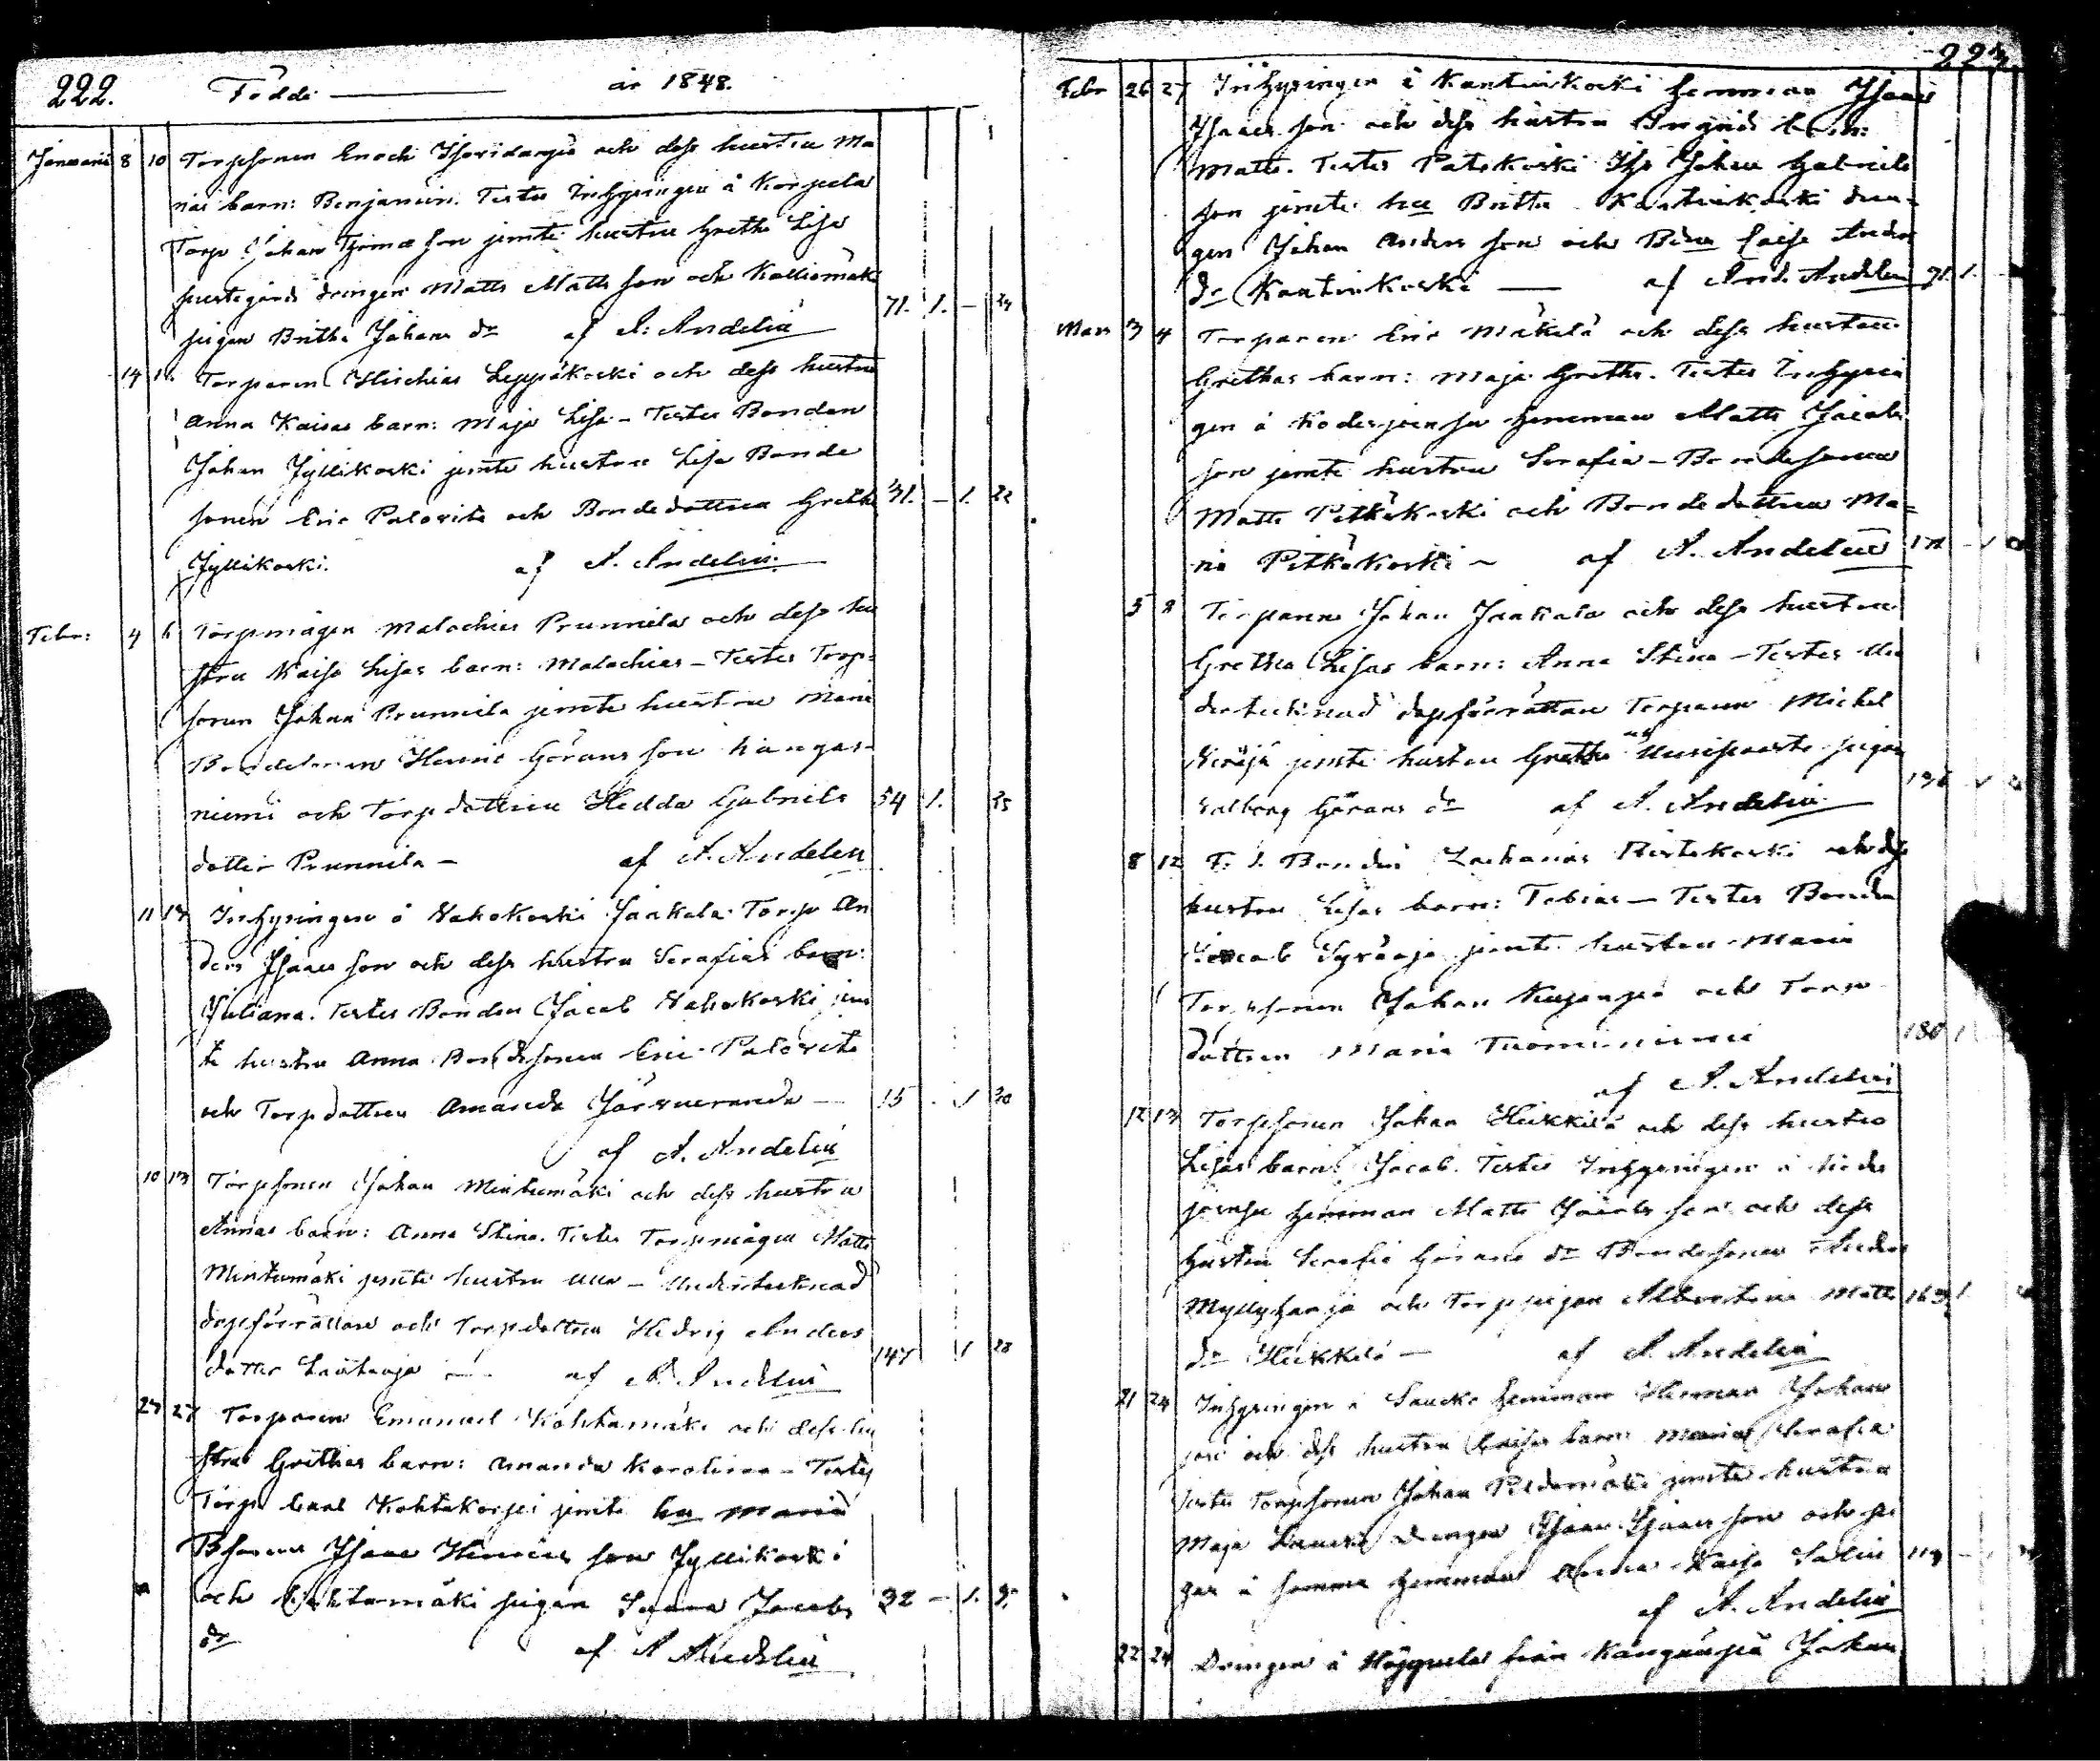 222. Födde år 1848.
Januarii 8 10 Torpsonen Enoch och dess hustru Ma
rias barn: Benjamin. Testes Inhysingen å Korpela
Torp Johan Thomæ son jemte hustru Gretha Lisa
prestgårds drengen Matts Matts son och Kalliomäki
pigan Britha Johans dr af A. Andelin 71. 1. - 24
14 Torparen Hischias Leppäkoski och dess hustru
Anna Kaisas barn: Maja Lisa - Testes Bonden
Johan Jyllikoski jemte hustru Lisa Bonde
sonen Eric Palovite och Bondedottren Gretha 31. - 1. 22
Jyllikoski. af A. Andelin
Febr: 4 6 Torpmågen Malachias Prunnila och dess hu
stru Kaisa Lisas barn: Malachias - Testes Torp-
sonen Johan Prunnila jemte hustru Maria
Bondesonen Henric Görans son Kangas-
niemi och Torpdottren Hedda Gabriels 54 1. 35
dotter Prunnila - af A. Andelin
11 13 Inhysingen å Kahokoski Jaakala Torp An
ders Isaacs son och dess hustru Serafias barn:
Juliana. Testes Bonden Jacob Kahokoski jem
te hustru Anna Bondesonen Eric Palovite
och Torpdottren Amanda 15 - 1 20
af A. Andelin
10 13 Torpsonen Johan Mintumäki och dess hustru
Annas barn: Anna Stina. Testes Torpmågen Matts
Mintumäki jemte hustru Ulla - Undertecknad
dopförrättare och Torpdottren Hedvig Anders
dotter af A. Andelin 147 1 28
23 27 Torparen Emanuel Kohtamäki och dess hu
strus Grethas barn: Amanda Karolina - Testes
Torp. Carl Kohtakorpi jemte hu Maria
Bsonen Isaac Henrics son Jyllikoski
och Kohtamäki pigan Sanna Jacobs 32 - 1.
dr af A. Andelin
223.
Febr 26 27 Inhysingen å Kantinkoski hemman Isaac
Isaacs son och dess hustru Brigitas barn:
Matts. Testes Patokoski Johan Gabriels
son jemte hu Britta Kantinkoski dren-
gen Johan Anders son och Caisa Anders
dr Kantinkoski - af And. Andelin 71. 1.
Mars 3 4 Torparen Eric Mäkelä och dess hustru
Grethas barn: Maja Gretha. Testes Inhysin
gen å Kodesjoensu hemman Matts Jacobs
son jemte hustru Serafia - Bondesonen
Matts Pitkäkoski och Bondedottren Ma-
ria Pitkäkoski - af A. Andelin
5 8 Torparen Johan Jaakala och dess hustru
Gretha Lisas barn: Anna Stina - Testes Un
dertecknad dopförrättare Torparen Michel
jemte hustru Gretha och pigan
Valborg Görans dr af A. Andelin 136
8 12 F. d. Bonden Zacharias Ristakoski och dess
hustru Lisas barn: Tobias - Testes Bonden
Jacob Syräoja jemte hustru Maria
Torpsonen Johan och Torp
dottren Maria Tuominiemi 180 1
af A. Andelin
12 13 Torpsonen Johan Heikkilä och dess hustru
Lisas barn: Jacob. Testes Inhysingen å Kodes
joensu hemman Matts Jacobs son och dess
hustru Serafia Görans dr Bondesonen Anders
Myllyharja och Torppigan Albertina Matts 163 1
dr Heikkilä - af A. Andelin
21 24 Inhysingen å Saucko hemman Herman Johans
son och dess hustru Caisas barn: Maria Serafia
Testes Torpsonen Johan jemte hustru
Maja drengen Isaac Isaacs son och pi
gan å samma hemman Anna Kaisa
af A. Andelin
22 24 Drengen å från Kangaspä Johan